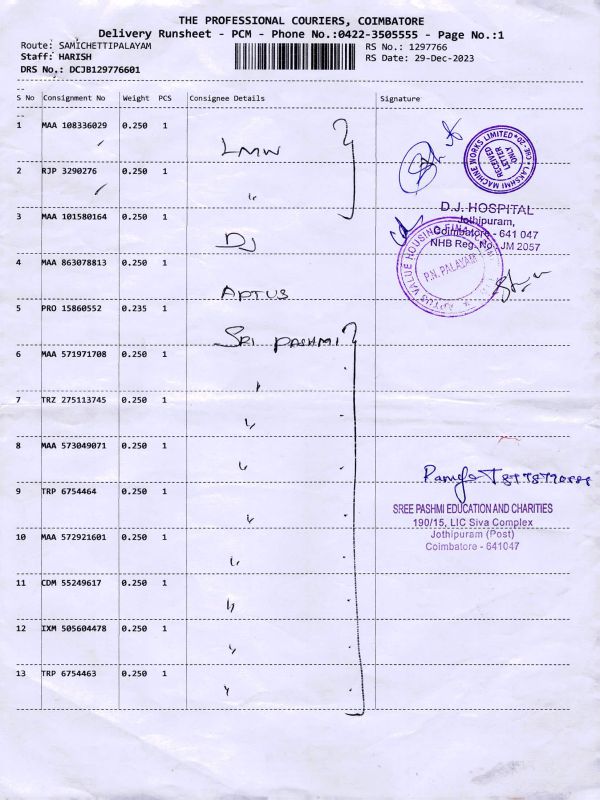 THE PROFESSIONAL COURIERS, COIMBATORE
Delivery Runsheet - PCM - Phone No.:0422-3505555 - Page No.:1
Route: SAMICHETTIPALAYAM
RS No.: 1297766
Staff: HARISH
RS Date: 29-Dec-2023
DRS No,: DCJB129776601
S No Consignment No Weight PCS Consignee Details Signature
1 MAA 108336029 0.250 1 LMW
LAKSHMI MACHINE WORKS LIMITED
RECEIVED
LETTER
ONLY
2 RJP 3290276 0.250 1 "
3 MAA 101580164 0.250 1 DJ
D.J. HOSPITAL
Jothipuram,
Coimbatore - 641 047
NHB Reg. No: JM 2057
4 MAA 863078813 0.250 1 APTUS
APTUS VALUE HOUSING
P.N. PALAYAM
5 PRO 15860552 0.235 1 SRI PASHMI
6 MAA 571971708 0.250 1 "
7 TRZ 275113745 0.250 1 "
8 MAA 573049071 0.250 1 "
9 TRP 6754464 0.250 1 "
SREE PASHMI EDUCATION AND CHARITIES
190/15, LIC Siva Complex
Jothipuram (Post)
Coimbatore - 641047
10 MAA 572921601 0.250 1 "
11 CDM 55249617 0.250 1 "
12 IXM 505604478 0.250 1 "
13 TRP 6754463 0.250 1 "